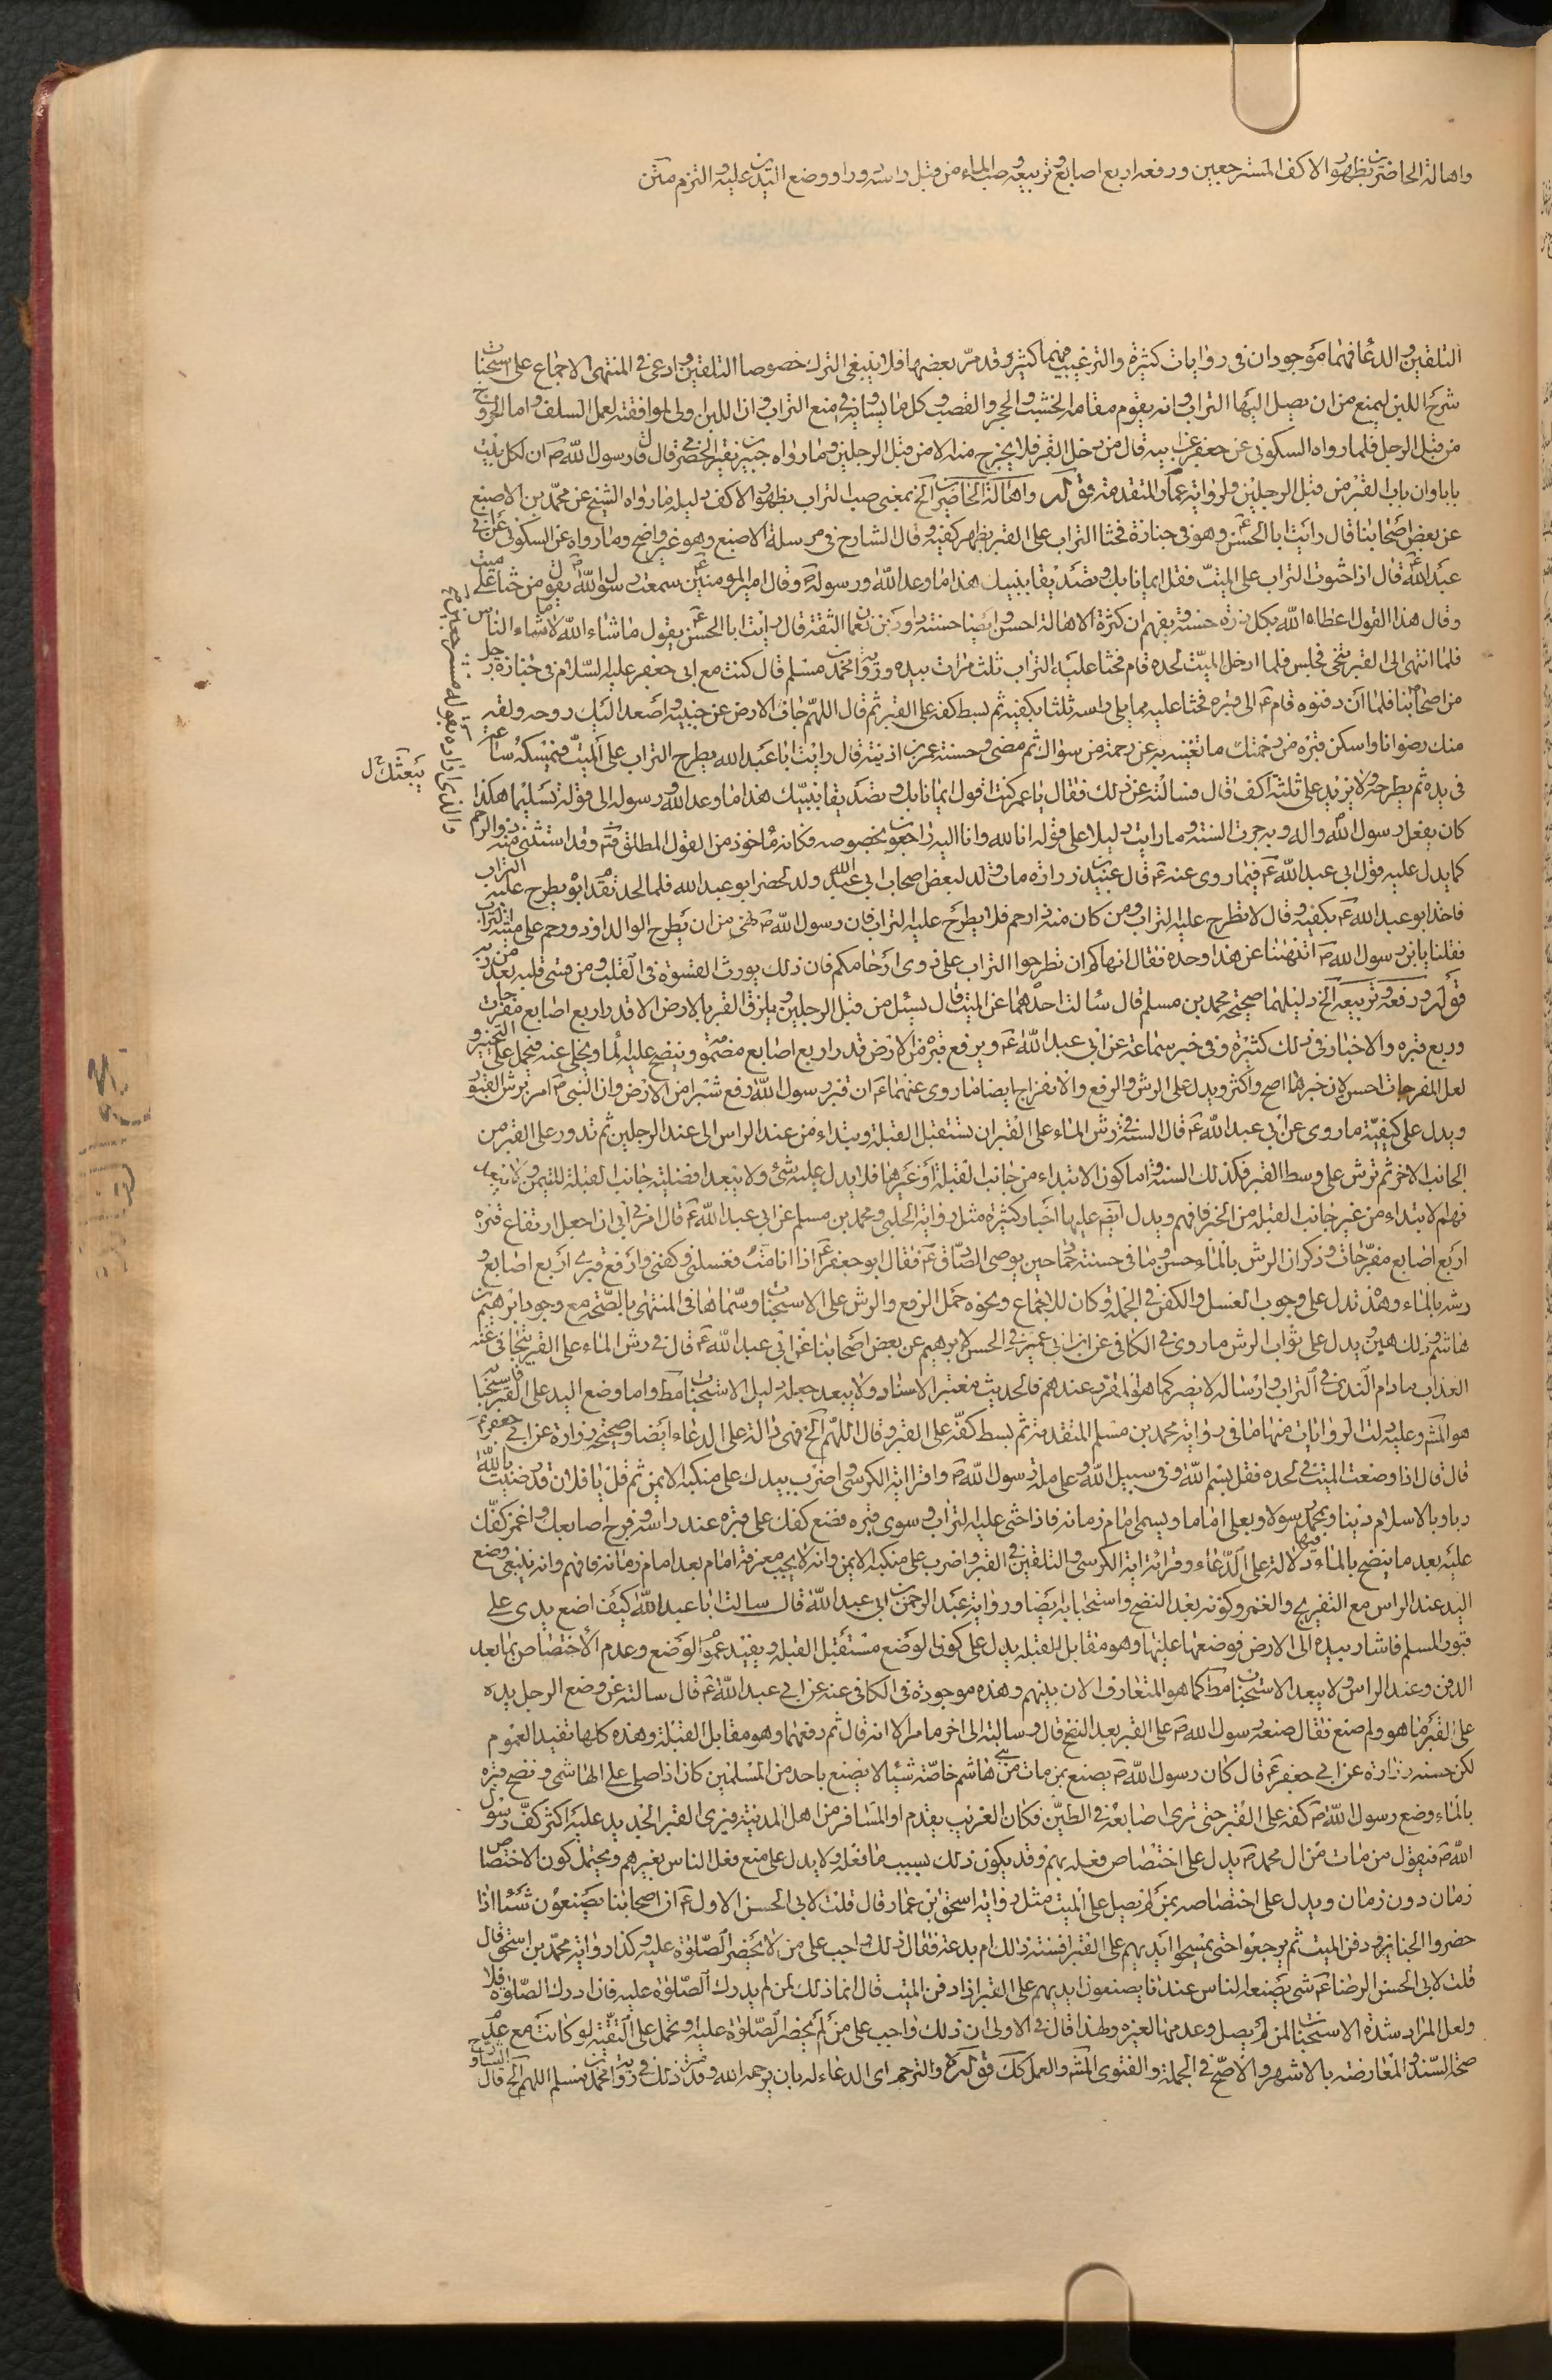 واهالة الحاضرين بظهور الاكف المسترجعين ورفعه اربع اصابع وتربيعه وصب الماء من قبل راسه ورا ووضع اليدين عليه والترحم متن
التلقين والدعا فهما موجودان فى روايات كثيرة والترغيب فيهما كثير وقد مر بعضها فلا ينبغى الترك خصوصا التلقين وادعى فى المنتهى الاجماع على استحباب
شرح اللبن ليمنع من ان يصل اليها التراب وانه يقوم مقامه الخشب والحجر والقصب وكل ما يساويه فى منع التراب وان اللبن اولى لموافقته لعمل السلف واما الخروج
من قبل الرجل فلما رواه السكونى عن جعفر عن ابيه قال من دخل القبر فلا يخرج منه الا من قبل الرجلين ولما رواه جبير بن نقير الحضرمى قال قال رسول الله ص ان لكل بيت
بابا وان باب القبر من قبل الرجلين ولرواية عمار المتقدمة قوله واهالة الحاضرين الخ بمعنى صب التراب بظهور الاكف دليله ما رواه الشيخ عن محمد بن الاصبغ
عن بعض اصحابنا قال رايت ابا الحسن ع وهو فى جنازة فحثا التراب على القبر بظهر كفيه وقال الشارح فى مرسلة الاصبغ وهو غير واضح وما رواه عن السكونى عن ابى
عبد الله ع قال اذا حثوت التراب على الميت فقل ايمانا بك وتصديقا بنبيك هذا ما وعد الله ورسوله ص وقال امير المومنين ع سمعت رسول الله ص يقول من حثا على ميت
وقال هذا القول اعطاه الله بكل ذرة حسنة ويفهم ان كثرة الاهالة احسن وايضا حسنة داود بن نعمان الثقة قال رايت ابا الحسن ع يقول ما شاء الله لا ما شاء الناس
فلما انتهى الى القبر تنحى فجلس فلما ادخل الميت لحده قام فحثا عليه التراب ثلث مرات بيده ورواية محمد بن مسلم قال كنت مع ابى جعفر عليه السلام فى جنازة رجل
من اصحابنا فلما ان دفنوه قام ع الى قبره فحثا عليه مما يلى راسه ثلثا بكفيه ثم بسط كفه على القبر ثم قال اللهم جاف الارض عن جنبيه واصعد اليك روحه ولقه
منك رضوانا واسكن قبره من رحمتك ما تغنيه به عن رحمة من سواك ثم مضى وحسنة عمر بن اذينة قال رايت ابا عبد الله يطرح التراب على الميت فيمسكه ساعة
فى يده ثم يطرحه ولا يزيد على ثلثة اكف قال فسالته عن ذلك فقال يا عمر كنت اقول ايمانا بك وتصديقا بنبيك هذا ما وعد الله ورسوله الى قوله تسليما هكذا
كان يفعل رسول الله واله وبه جرت السنة وما رايت دليلا على قوله انا لله وانا اليه راجعون بخصوصه فكانه ماخوذ من القول المطلق وقد استثنى منه ذو الرحم
كما يدل عليه قول ابى عبد الله ع فيما روى عنه ع قال عبيد بن زرارة مات ولد لبعض اصحاب ابى عبد الله ولد لحضر ابو عبد الله فلما الحد تقدم ابوه يطرح عليه التراب
فاخذ ابو عبد الله ع بكفيه وقال لا تطرح عليه التراب ومن كان منه ذا رحم فلا يطرح عليه التراب فان رسول الله ص نهى من ان يطرح الوالد او ذو رحم على ميته التراب
فقلنا يابن رسول الله ص اتنهانا عن هذا وحده فقال انهاكم ان تطرحوا التراب على ذوى ارحامكم فان ذلك يورث القسوة فى القلب ومن قسى قلبه بعد من ربه
قوله ورفعه وتربيعه الخ دليلهما صحيحة محمد بن مسلم قال سالت احدهما عن الميت قال يسئل من قبل الرجلين ويلزق القبر بالارض الا قدر اربع اصابع مفرجات
وربع قبره والاخبار فى ذلك كثيرة وفى خبر سماعة عن ابى عبد الله ع ويرفع قبره من الارض قدر اربع اصابع مضمومة وينضح عليه الماء ويخلى عنه فيحمل على التخيير و
لعل المفرجات احسن لان خبرها اصح واكثر ويدل على الرش والرفع والانفراج ايضا ما روى عنهما ع ان قبر رسول الله رفع شبرا من الارض وان النبى ص امر برش القبور
ويدل على كيفيته ما روى عن ابى عبد الله ع قال السنة فى رش الماء على القبر ان تستقبل القبلة وتبداء من عند الراس الى عند الرجلين ثم تدور على القبر من
الجانب الاخر ثم ترش على وسط القبر فكذلك السنة واما كون الابتداء من جانب القبلة او غيرها فلا يدل عليه شئ ولا يبعد افضلية جانب القبلة للتيمن ولا يبعد
فهم الابتداء من غير جانب القبلة من الخبر فافهم ويدل ايضا عليها اخبار كثيرة مثل رواية الحلبى ومحمد بن مسلم عن ابى عبد الله ع قال امرنى ابى ان اجعل ارتفاع قبره
اربع اصابع مفرجات وذكر ان الرش بالماء حسن وما فى حسنة حماد حين يوصى الصادق ع فقال ابو جعفر ع اذا انا مت فغسلنى وكفنى وارفع قبرى اربع اصابع و
رشه بالماء وهذه تدل على وجوب الغسل والكفن فى الجملة وكان للاجماع ونحوه حمل الرفع والرش على الاستحباب وسماها فى المنتهى بالصحة مع وجود ابرهيم بن
هاشم وذلك هين ويدل على ثواب الرش ما روى فى الكافى عن ابن ابى عمير فى الحسن لابرهيم عن بعض اصحابنا عن ابى عبد الله ع قال فى رش الماء على القبر يتجافى عنه
العذاب ما دام الندى فى التراب وارساله لا يضر كما هو المقرر عندهم فالحديث معتبر الاسناد ولا يبعد جعله دليل الاستحباب مط واما وضع اليد على القبر فاستحبابه
هو المشهور وعليه دلت الروايات منها ما فى رواية محمد بن مسلم المتقدمة ثم بسط كفه على القبر وقال اللهم الخ فهى دالة على الدعاء ايضا وصحيحة زرارة عن ابى جعفر ع
قال قال اذا وضعت الميت فى لحده فقل بسم الله وفى سبيل الله وعلى ملة رسول الله ص واقرا اية الكرسى واضرب بيدك على منكبه الايمن ثم قل يا فلان قد رضيت بالله
ربا وبالاسلام دينا وبمحمد رسولا وبعلى اماما ويسمى امام زمانه فاذا حثى عليه التراب وسوى قبره فضع كفك على قبره عند راسه وفرج اصابعك واغمز كفك
عليه بعد ما ينضح بالماء وفيها دلالة على الدعاء وقرائة اية الكرسى والتلقين فى القبر واضرب على منكبه الايمن وانه لا يجب معرفة امام بعد امام زمانه فافهم وانه ينبغى وضع
اليد عند الراس مع التفريج والغمز وكونه بعد النضح واستحبابه ايضا ورواية عبد الرحمن بن ابى عبد الله قال سالت ابا عبد الله كيف اضع يدى على
قبور المسلم فاشار بيده الى الارض فوضعها عليها وهو مقابل القبلة يدل على كون الوضع مستقبل القبلة ويفيد عموم الوضع وعدم الاختصاص بما بعد
الدفن وعند الراس ولا يبعد الاستحباب مط كما هو المتعارف الان بينهم وهذه موجودة فى الكافى عنه عن ابى عبد الله ع قال سالته عن وضع الرجل يده
على القبر ما هو ولم صنع فقال صنعه رسول الله ص على القبر بعد النضح قال وسالته الى اخر ما مر الا انه قال ثم رفعهما وهو مقابل القبلة وهذه كلها تفيد العموم
لكن حسنة زرارة عن ابى جعفر ع قال كان رسول الله ص يصنع بمن مات من بنى هاشم خاصة شيئا لا يصنع باحد من المسلمين كان اذا صلى على الهاشمى ونضح قبره
بالماء وضع رسول الله ص كفه على القبر حتى ترى اصابعه فى الطين فكان الغريب يقدم او المسافر من اهل المدينة فيرى القبر الجديد عليه اثر كف رسول
الله ص فيقول من مات من ال محمد ص يدل على اختصاص فعله بهم وقد يكون ذلك بسبب ما فعله ولا يدل على منع فعل الناس بغيرهم ويحتمل كون الاختصاص
زمان دون زمان ويدل على اختصاصه بمن لم يصل على الميت مثل رواية اسحق بن عمار قال قلت لابى الحسن الاول ع ان اصحابنا يصنعون شيئا اذا
حضروا الجنازة ودفن الميت ثم يرجعوا حتى يمسحوا ايديهم على القبر افسنة ذلك ام بدعة فقال ذلك واجب على من لم يحضر الصلوة عليه وكذا رواية محمد بن اسحق قال
قلت لابى الحسن الرضا ع شى يصنعه الناس عندنا يضعون ايديهم على القبر اذا دفن الميت قال انما ذلك لمن لم يدرك الصلوة عليه فان ادرك الصلوة فلا
ولعل المراد شدة الاستحباب لمن لم يصل وعدمها لغيره ولهذا قال فى الاولى ان ذلك واجب على من لم يحضر الصلوة عليه وتحمل على التقية لو كانت مع عدم
صحة السند والمعارضة بالاشهر والاصح فى الجملة والفتوى المشهور والعمل كك قوله والترحم اى الدعاء له بان يرحمه الله وقد مر ذلك فى رواية محمد بن مسلم اللهم الخ قال
يبعثك ل